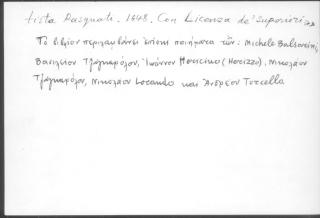 tista Pasquali. 1648. Con Licenza de' Superiori>>
Τὸ βιβλίον περιλαμβάνει ἐπίσης ποιήματα τῶν: Michele Balsarini,
Βασιλείου Τζαγκαρόλου, Ἰωάννου Μ (Morizzo), Νικολάου
Τζαγκαρόλου, Νικολάου Locando καὶ Ἀνδρέου Torcello